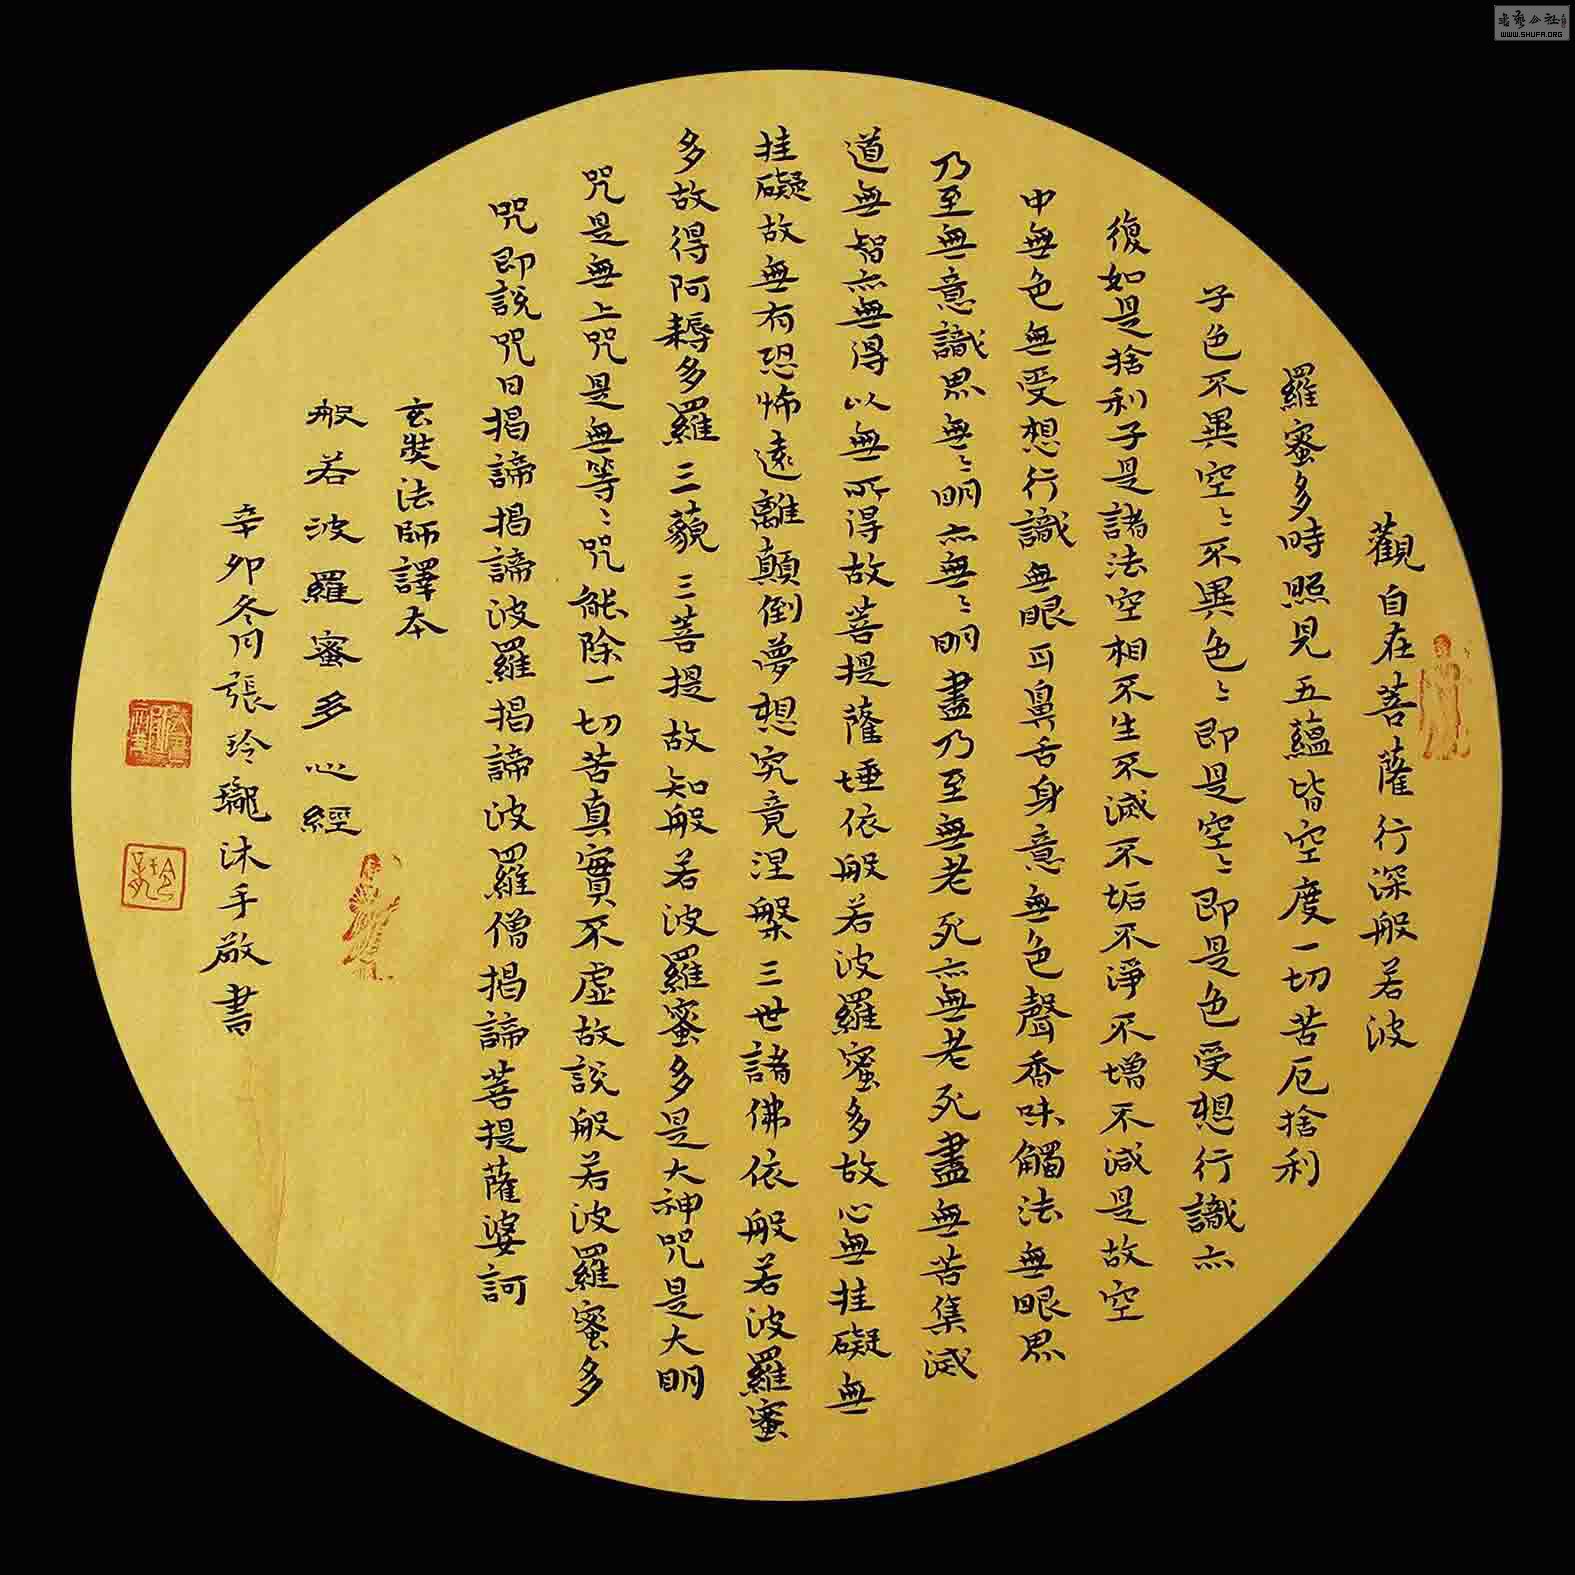 觀自在菩薩行深般若波
羅蜜多時照見五蘊皆空度一切苦厄捨利
子色不異空〻不異色〻即是空〻即是色受想行識亦
復如是捨利子是諸法空相不生不滅不垢不淨不增不減是故空
中無色無受想行識無眼耳鼻舌身意無色聲香味觸法無眼界
乃至無意識界無〻明亦無〻明盡乃至無老死亦無老死盡無苦集滅
道無智亦無得以無所得故菩提薩埵依般若波羅蜜多故心無挂礙無
挂礙故無有恐怖遠離顛倒夢想究竟涅槃三世諸佛依般若波羅蜜
多故得阿耨多羅三藐三菩提故知般若波羅蜜多是大神咒是大明
咒是無上咒是無等〻咒能除一切苦真實不虛故說般若波羅蜜多
咒即說咒曰揭諦揭諦波羅揭諦波羅僧揭諦菩提薩婆訶
玄奘法師譯本
般若波羅蜜多心經
辛卯冬月張玲瓏沐手敬書
WWW.SHUFA.ORG